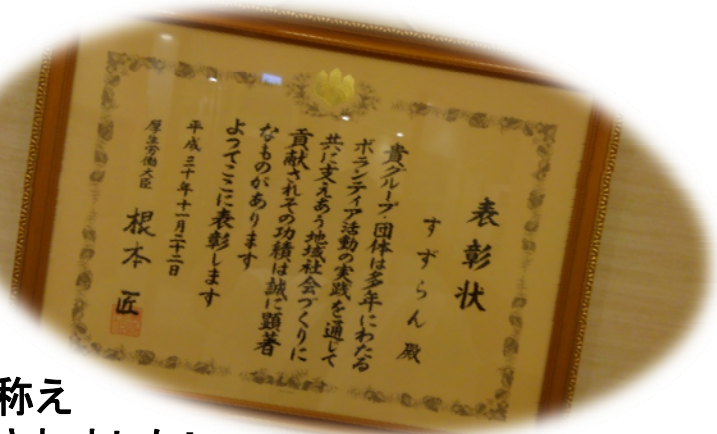 表彰状
すずらん 殿
貴グループ・団体は多年にわたる
ボランティア活動の実践を通じて
共に支えあう地域社会づくりに
貢献されその功績は誠に顕著
なものがあります
よってここに表彰します
平成三十年十一月二十二日
厚生労働大臣 根本 匠
称え